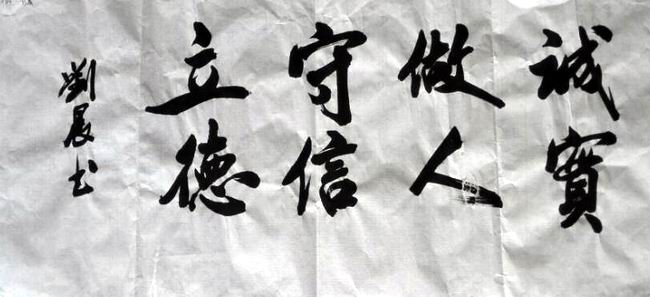 誠實
做人
守信
立德
劉晨书